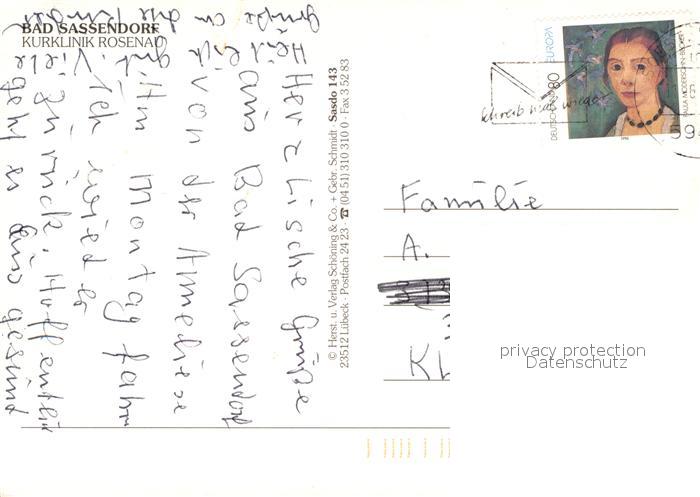 BAD SASSENDORF
KURKLINIK ROSENAU
Herzlische Grüße
aus Bad Sassendorf
von der Anneliese
Am Montag fahr
ich wieder
zurück. Hoffentlich
geht es Euch gesund
gut. Viele
Grüße an die Kinder
© Herst. u. Verlag Schöning & Co. + Gebr. Schmidt · Sasdo 143
23512 Lübeck · Postfach 24 23 · ☎ (04 51) 310 310 0 · Fax 3 52 83
EUROPA
DEUTSCHLAND 80
PAULA MODERSOHN-BECKER
1996
Schreib mal wieder
Familie
A.
Kl
privacy protection
Datenschutz